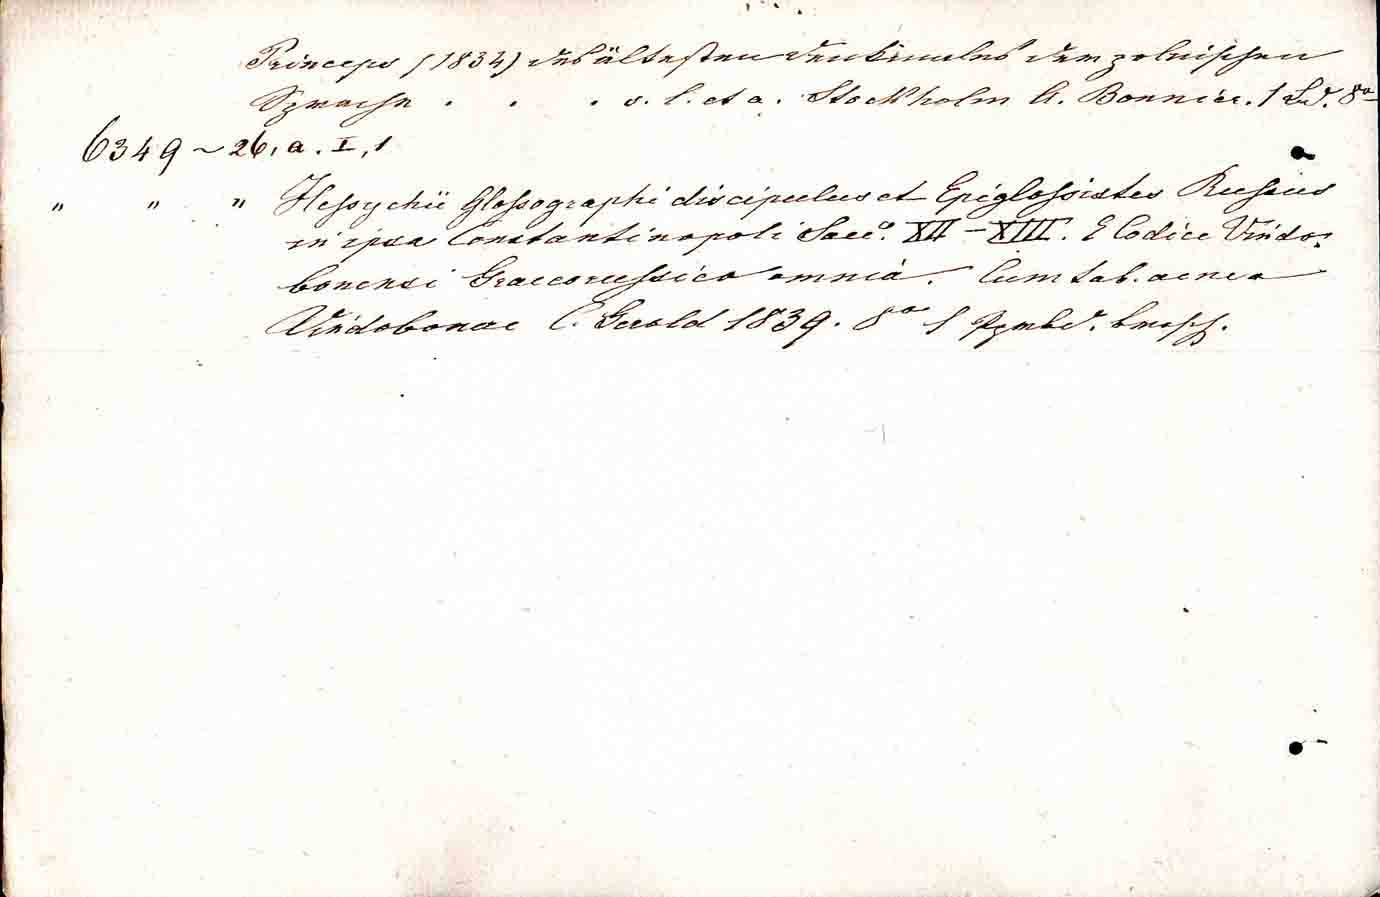 Princeps (1834) des ältesten Denkmales der polnischen
Sprache . . . s. l. et a. Stockholm A. Bonnier. 1 Bd. 8º
6349 ~ 26, a. I, 1
" " " Hesychii Glossographi discipulus et Epiglossistes Russus
in ipsa Constantinopoli Saec. XII – XIII. E Codice Vindo-
bonensi Graecorussico omnia. Cum tab. aenea
Vindobonae C. Gerold 1839. 8º 1 Ppbd. brosch.